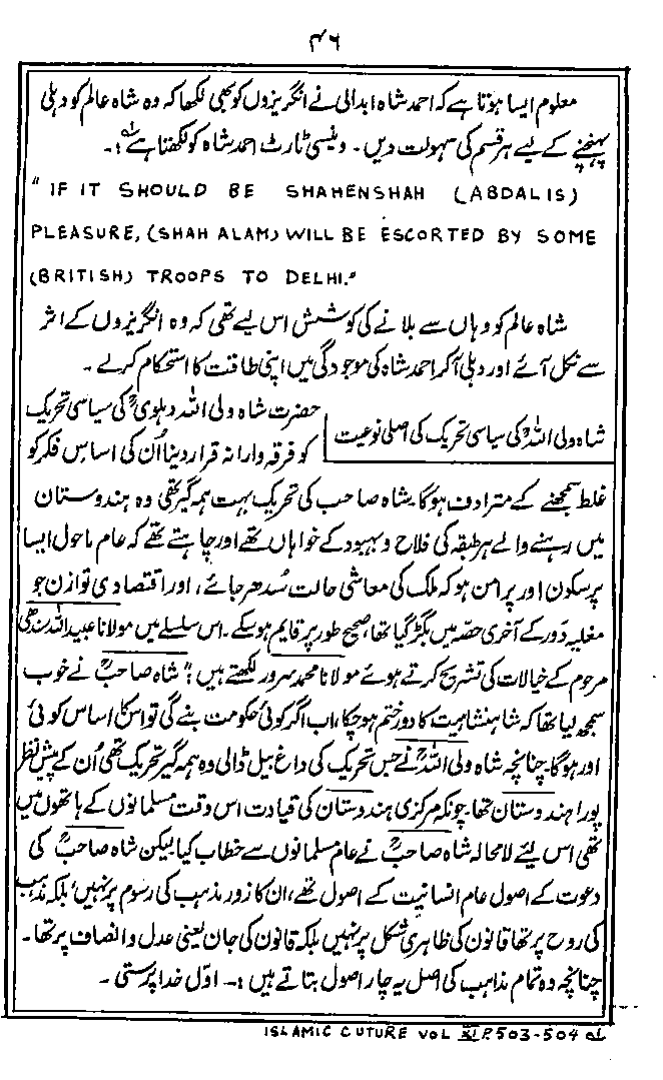 ۴۶
معلوم ایسا ہوتا ہے کہ احمد شاہ ابدالی نے انگریزوں کو بھی لکھا کہ وہ شاہ عالم کو دہلی
پہنچنے کے لیے ہر قسم کی سہولت دیں۔ ونسی ٹارٹ احمد شاہ کو لکھتا ہے لہ :۔
"IF IT SHOULD BE SHAHENSHAH (ABDALIS)
PLEASURE, (SHAH ALAM) WILL BE ESCORTED BY SOME
(BRITISH) TROOPS TO DELHI."
شاہ عالم کو وہاں سے بلانے کی کوشش اس لیے تھی کہ وہ انگریزوں کے اثر
سے نکل آئے اور دہلی آکر احمد شاہ کی موجودگی میں اپنی طاقت کا استحکام کرلے۔
شاہ ولی اللہؒ کی سیاسی تحریک کی اصلی نوعیت
حضرت شاہ ولی اللہ دہلویؒ کی سیاسی تحریک
کو فرقہ وارانہ قرار دینا اُن کی اساسِ فکر کو
غلط سمجھنے کے مترادف ہوگا۔ شاہ صاحب کی تحریک بہت ہمہ گیر تھی وہ ہندوستان
میں رہنے والے ہر طبقہ کی فلاح و بہبود کے خواہاں تھے اور چاہتے تھے کہ عام ماحول ایسا
پرسکون اور پرامن ہو کہ ملک کی معاشی حالت سُدھر جائے، اور اقتصادی توازن جو
مغلیہ دَور کے آخری حصّہ میں بگڑ گیا تھا، صحیح طور پر قایم ہوسکے۔ اس سلسلے میں مولانا عبید اللہ سندھی
مرحوم کے خیالات کی تشریح کرتے ہوئے مولانا محمد سرور لکھتے ہیں:" شاہ صاحبؒ نے خوب
سمجھ لیا تھا کہ شاہنشاہیت کا دور ختم ہوچکا، اب اگر کوئی حکومت بنے گی تو اسکی اساس کوئی
اور ہوگا۔ چنانچہ شاہ ولی اللہؒ نے جس تحریک کی داغ بیل ڈالی وہ ہمہ گیر تحریک تھی اُن کے پیش نظر
پورا ہندوستان تھا۔ چونکہ مرکزی ہندوستان کی قیادت اس وقت مسلمانوں کے ہاتھوں میں
تھی اس لیے لامحالہ شاہ صاحبؒ نے عام مسلمانوں سے خطاب کیا لیکن شاہ صاحبؒ کی
دعوت کے اصول عام انسانیت کے اصول تھے، ان کا زور مذہب کی رسوم پر نہیں بلکہ مذہب
کی روح پر تھا قانون کی ظاہری شکل پر نہیں بلکہ قانون کی جان یعنی عدل و انصاف پر تھا۔
چنانچہ وہ تمام مذاہب کی اصل یہ چار اصول بتاتے ہیں :۔ اوّل خدا پرستی۔
ISLAMIC CUTURE VOL XI P. 503-504 لہ